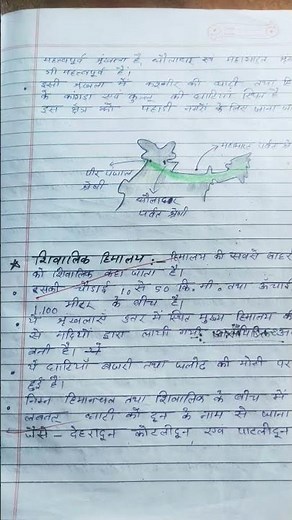 महत्वपूर्ण श्रृंखला है, धौलाधार एवं महाभारत
भी महत्वपूर्ण है।
इसी श्रृंखला में कश्मीर की घाटी तथा
के कांगड़ा एवं कुल्लू की घाटियां स्थित है
इस क्षेत्र को पहाड़ी नगरों के लिए जाना
महाभारत पर्वत श्रेणी
पीर पंजाल
श्रेणी
धौलाधार
पर्वत श्रेणी
* शिवालिक हिमालय :- हिमालय की सबसे बाहरी
को शिवालिक कहा जाता है।
• इसकी चौड़ाई 10 से 50 कि.मी. तथा ऊँचाई
1,100 मीटर के बीच है।
• ये श्रृंखलाएं उत्तर में स्थित मुख्य हिमालय की
से नदियों द्वारा लायी गयी
बनी है।
• ये घाटियाँ बजरी तथा जलोढ़ की मोटी पर
हुई है।
• निम्न हिमाचल तथा शिवालिक के बीच में
घाटी को दून के नाम से जाना
जैसे - देहरादून कोटलीदून एवं पाटलीदून